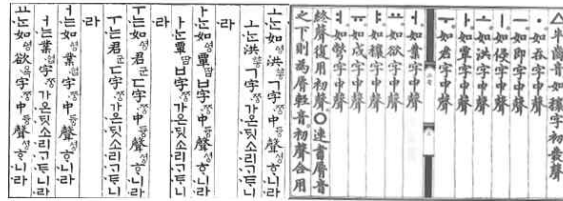 △半齒音如穰字初發聲
·如呑字中聲
ㅡ如即字中聲
ㅣ如侵字中聲
ㅗ如洪字中聲
ㅏ如覃字中聲
ㅜ如君字中聲
ㅓ如業字中聲
ㅛ如欲字中聲
ㅑ如穰字中聲
ㅠ如戌字中聲
ㅕ如彆字中聲
終聲復用初聲○連書脣音
之下則爲脣輕音初聲合用
ㅗᄂᆞᆫ如洪ㄱ字中聲ᄒᆞ니라
ㅗᄂᆞᆫ洪ㄱ字가온ᄃᆡᆺ소리ᄀᆞᄐᆞ니
라
ㅏᄂᆞᆫ如覃ㅂ字中聲ᄒᆞ니라
ㅏᄂᆞᆫ覃ㅂ字가온ᄃᆡᆺ소리ᄀᆞᄐᆞ니
라
ㅜ는如君ㄷ字中聲ᄒᆞ니라
ㅜ는君ㄷ字가온ᄃᆡᆺ소리ᄀᆞᄐᆞ니
라
ㅓ는如業字中聲ᄒᆞ니라
ㅓ는業字가온ᄃᆡᆺ소리ᄀᆞᄐᆞ니라
ㅛᄂᆞᆫ如欲字中聲ᄒᆞ니라